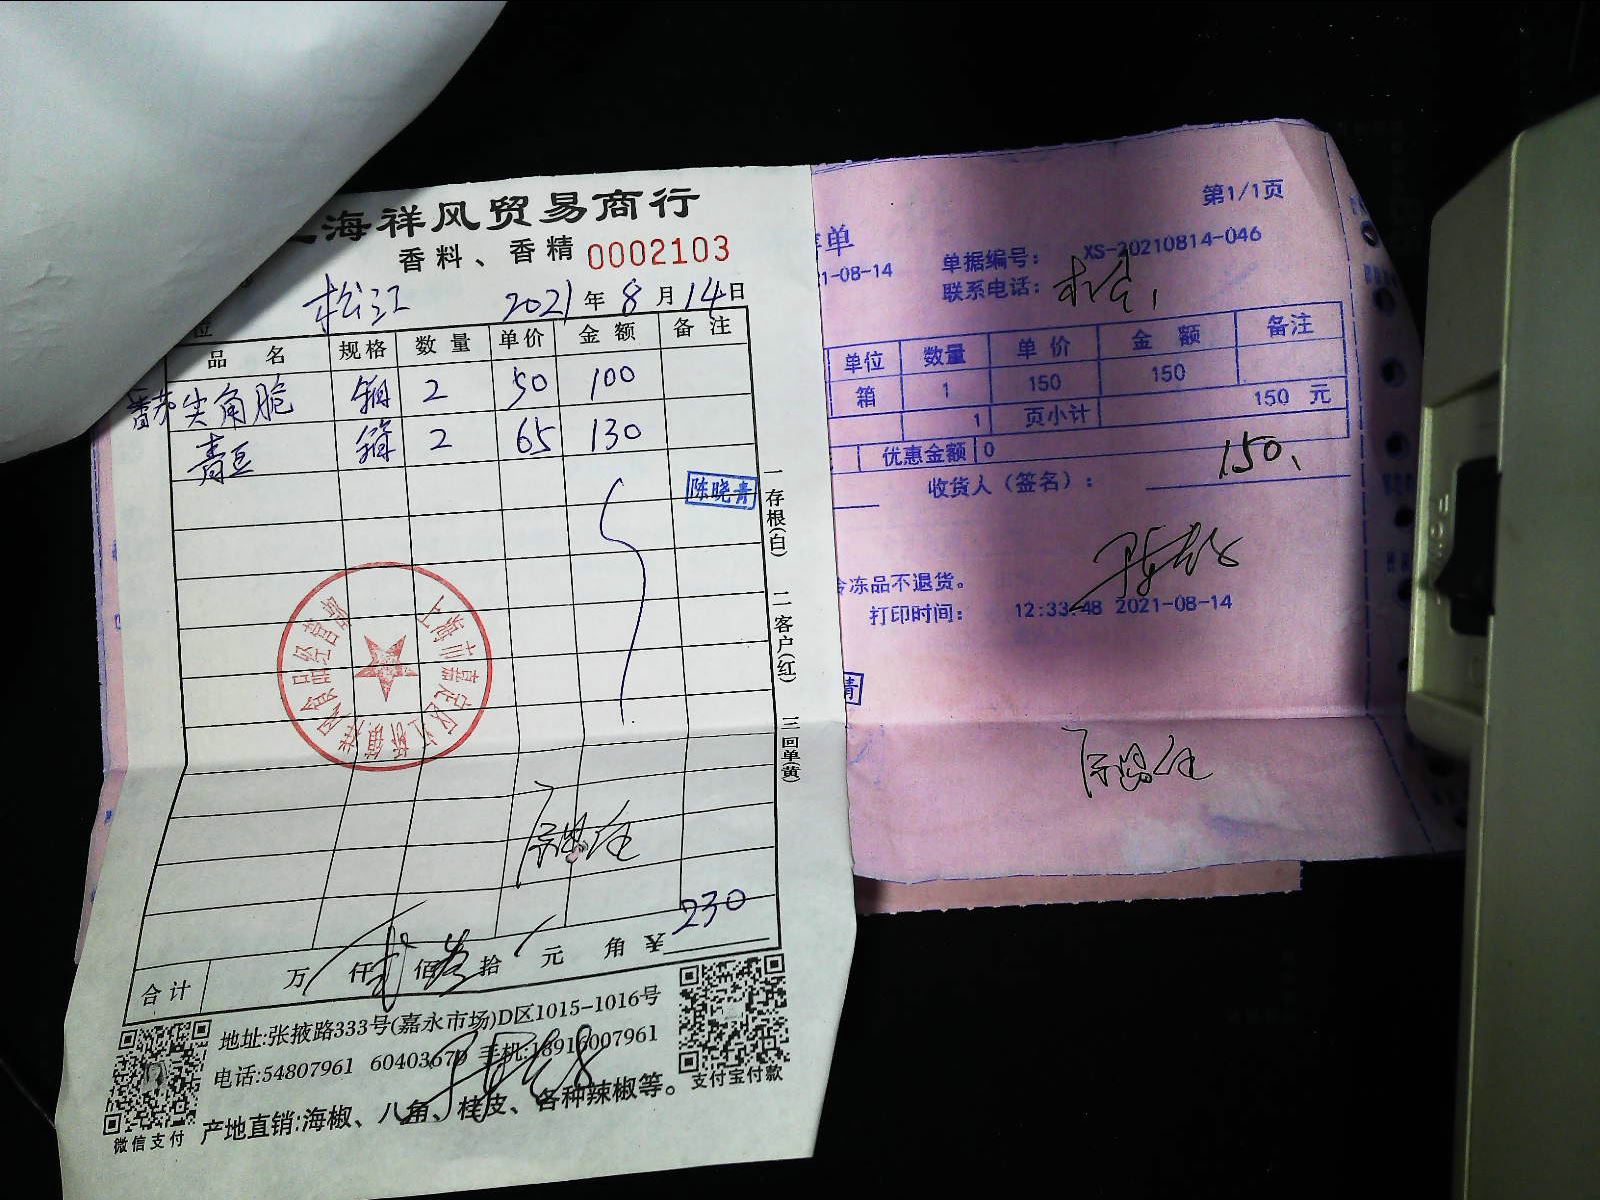 海祥风贸易商行
香料、香精 0002103
位 松江 2021年8月14日
品名 规格 数量 单价 金额 备注
番茄尖角脆 箱 2 50 100
青豆 箱 2 65 130
陈晓青
一存根(白) 二客户(红) 三回单(黄)
上海市嘉定区江桥镇祥风食品经营部
合计 万 仟 贰 佰 叁 拾 元 角 ¥ 230
地址:张掖路333号(嘉永市场)D区1015-1016号
电话:54807961 60403670 手机:18916007961
产地直销:海椒、八角、桂皮、各种辣椒等。
微信支付
支付宝付款
第1/1页
单
1-08-14 单据编号: XS-20210814-046
联系电话: 松江
单位 数量 单价 金额 备注
箱 1 150 150
1 页小计 150 元
优惠金额 0
150、
收货人(签名):
冷冻品不退货。
打印时间: 12:33:48 2021-08-14
青